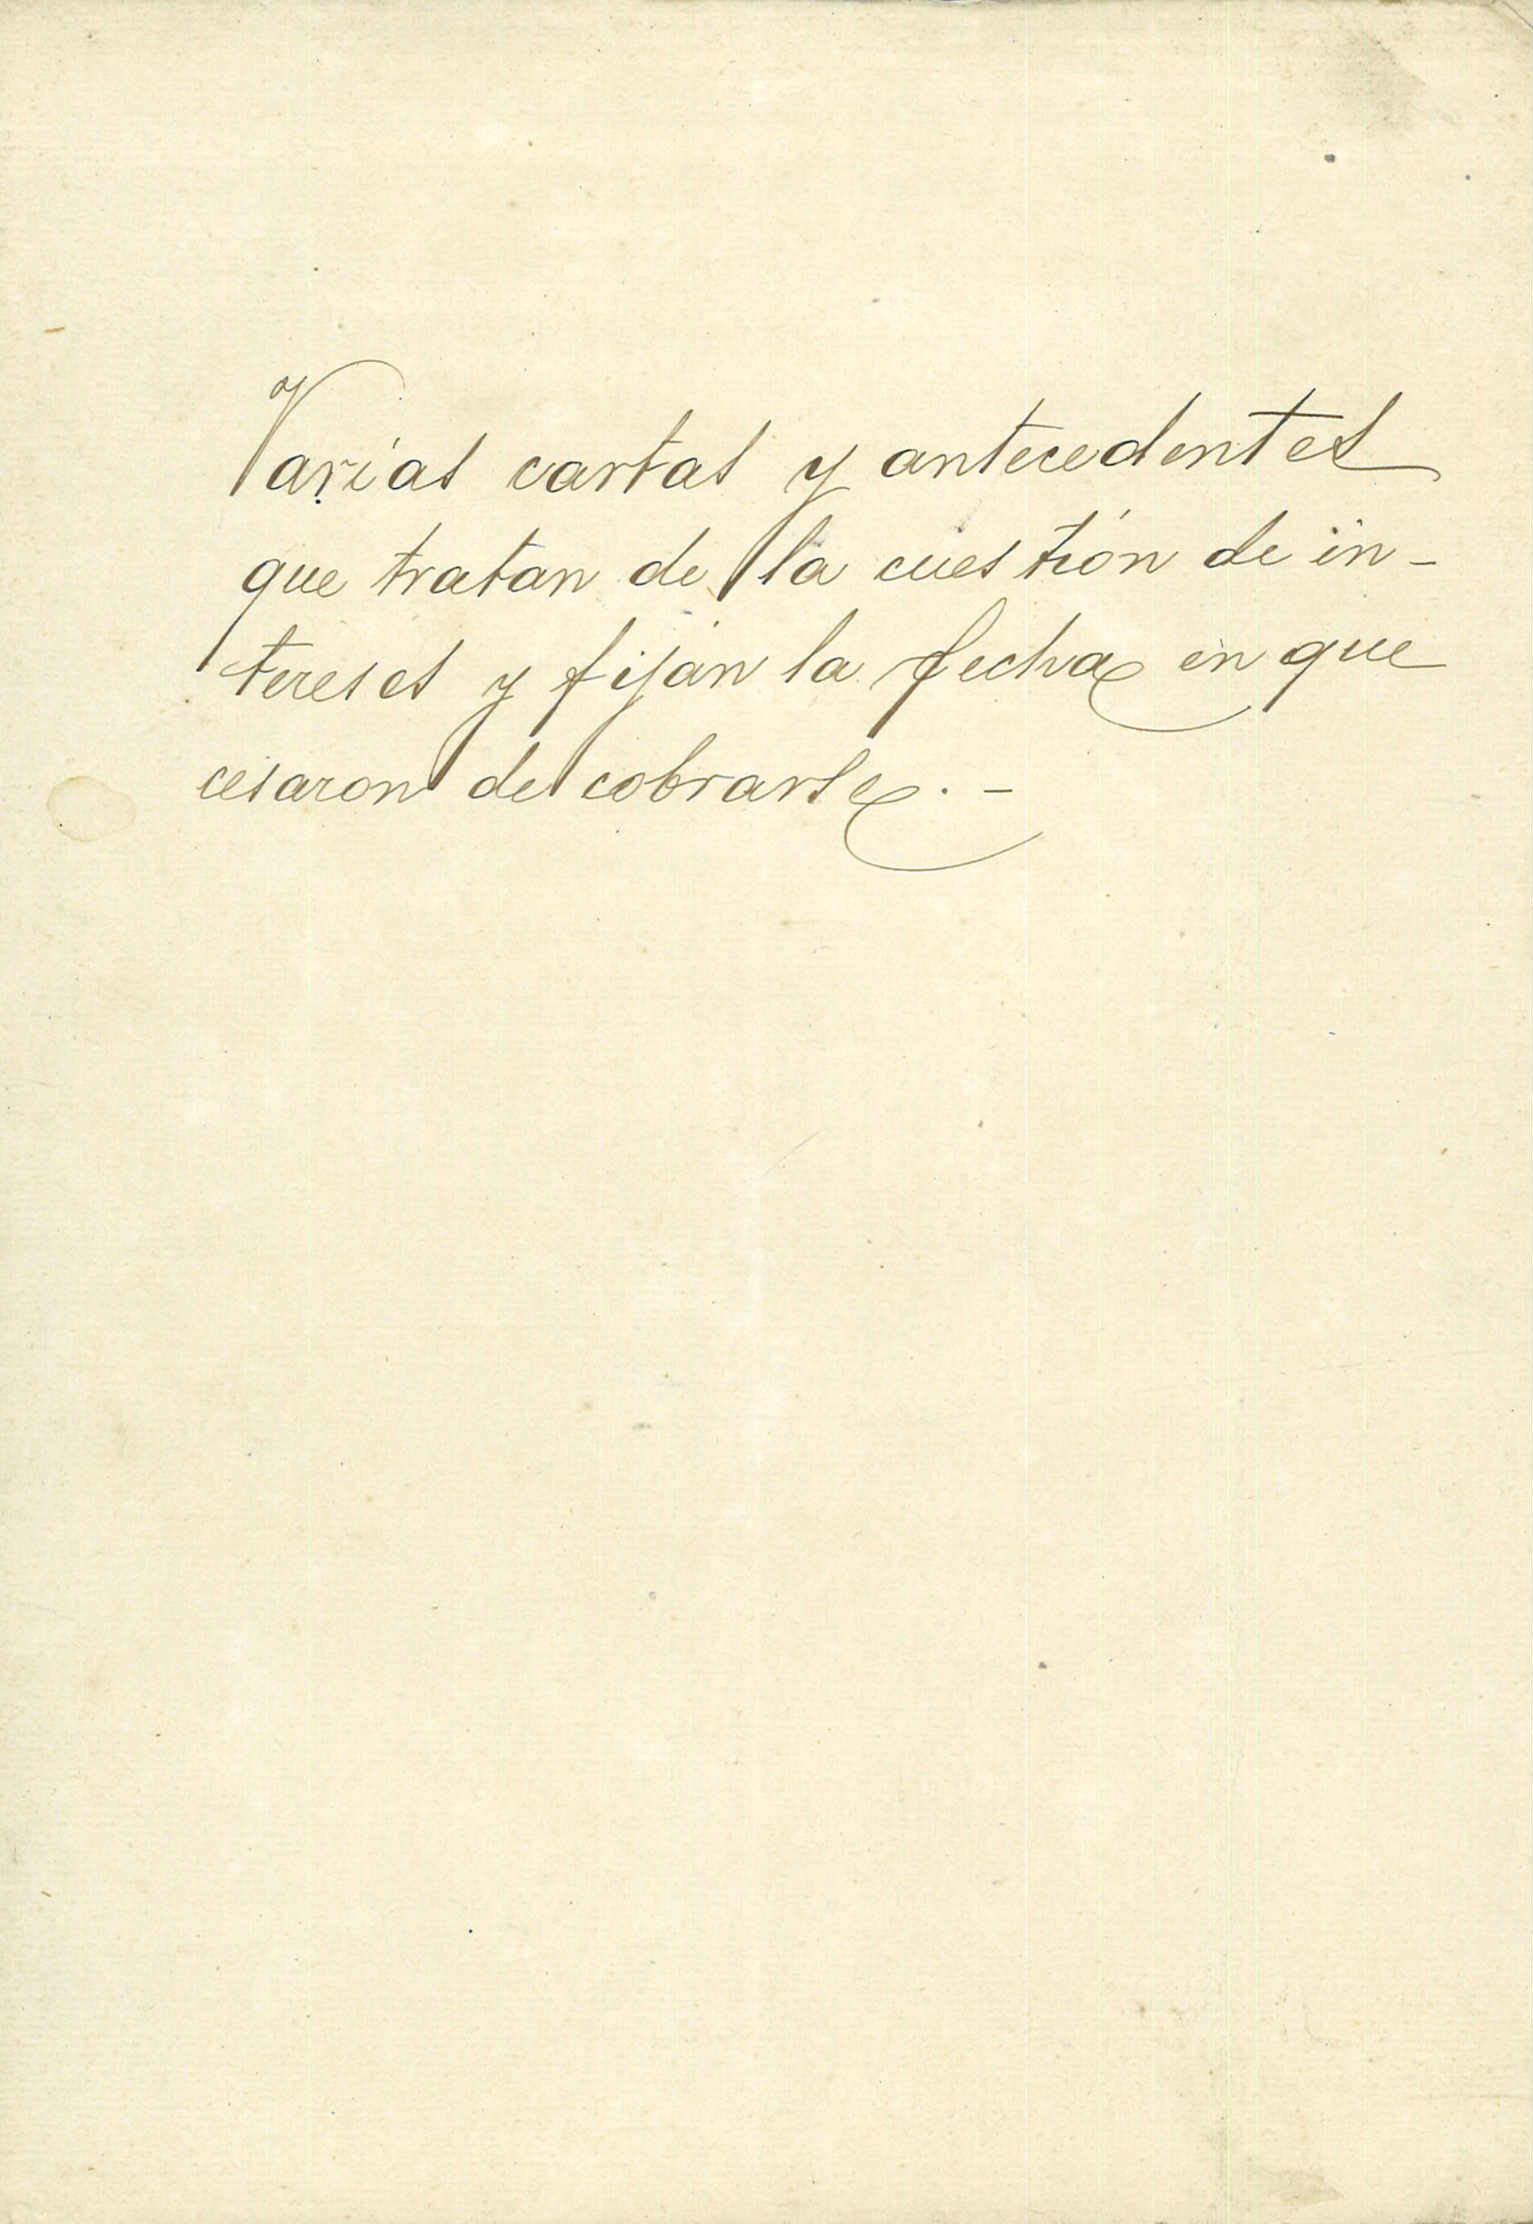 Varias cartas y antecedentes
que tratan de la cuestión de in-
tereses y fijan la fecha en que
cesaron de cobrarse. -